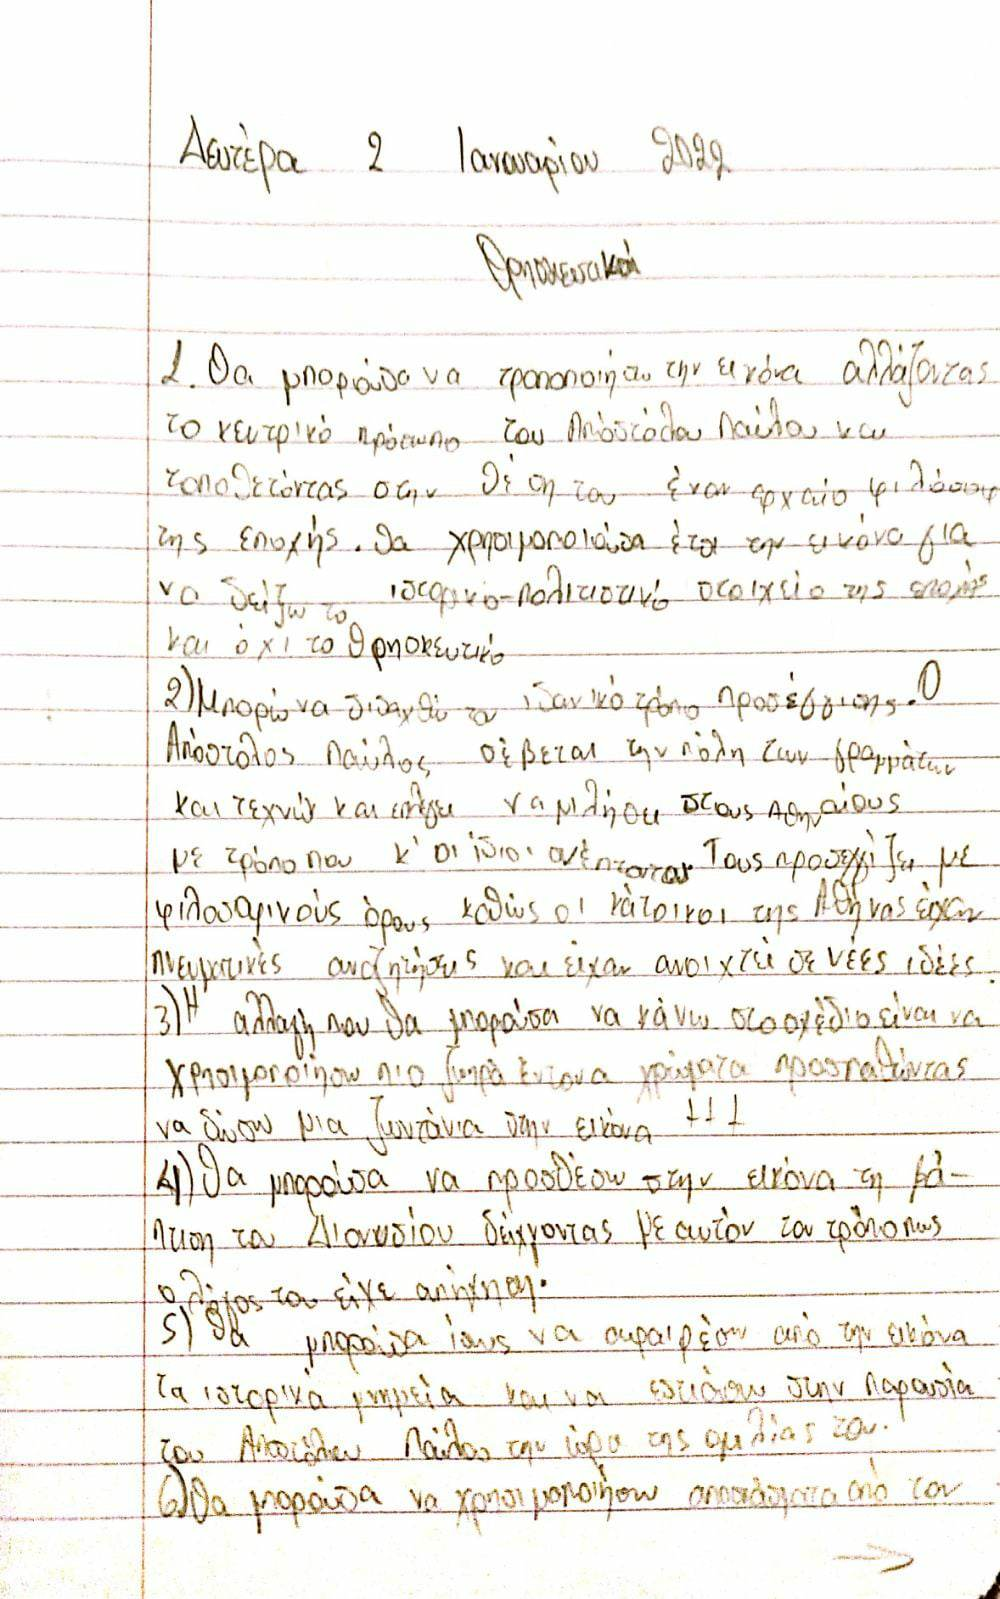 Δευτέρα 2 Ιανουαρίου 2022
Θρησκευτικά
1. Θα μπορούσα να τροποποιήσω την εικόνα αλλάζοντας
το κεντρικό πρόσωπο του Απόστόλου Παύλου και
τοποθετώντας στην θέση του έναν αρχαίο φιλόσοφ
της εποχής. Θα χρησιμοποιούσα έτσι την εικόνα για
να δείξω το ιστορικό-πολιτιστικό στοιχείο της εποχής
και όχι το θρησκευτικό
2) Μπορώ να διδαχθώ τον ιδανικό τρόπο προσέγγισης. Ο
Απόστολος Παύλος σέβεται την πόλη των γραμμάτων
και τεχνών και επιλέγει να μιλήσει στους Αθηναίους
με τρόπο που κ' οι ίδιοι σκέπτονται Τους προσεγγίζει με
φιλοσοφικούς όρους καθώς οι κάτοικοι της Αθήνας είχαν
πνευματικές αναζητήσεις και είχαν ανοιχτεί σε νέες ιδέες.
3) Η αλλαγή που θα μπορούσα να κάνω στο σχέδιο είναι να
χρησιμοποιήσω πιο ζωηρά έντονα χρώματα προσπαθώντας
να δώσω μια ζωντάνια στην εικόνα !!!
4) Θα μπορούσα να προσθέσω στην εικόνα τη βά-
πτιση του Διονυσίου δείχνοντας με αυτόν τον τρόπο πως
ο λόγος του είχε απήχηση.
5) Θα μπορούσα ίσως να αφαιρέσω από την εικόνα
τα ιστορικά μνημεία και να εστιάσω στην παρουσία
του Αποστόλου Παύλου την ώρα της ομιλίας του.
6) Θα μπορούσα να χρησιμοποιήσω αποσπάσματα από τον